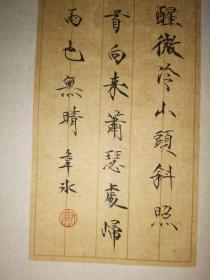 醒微冷山頭斜照
首向来蕭瑟處歸
雨也無晴 韋冰